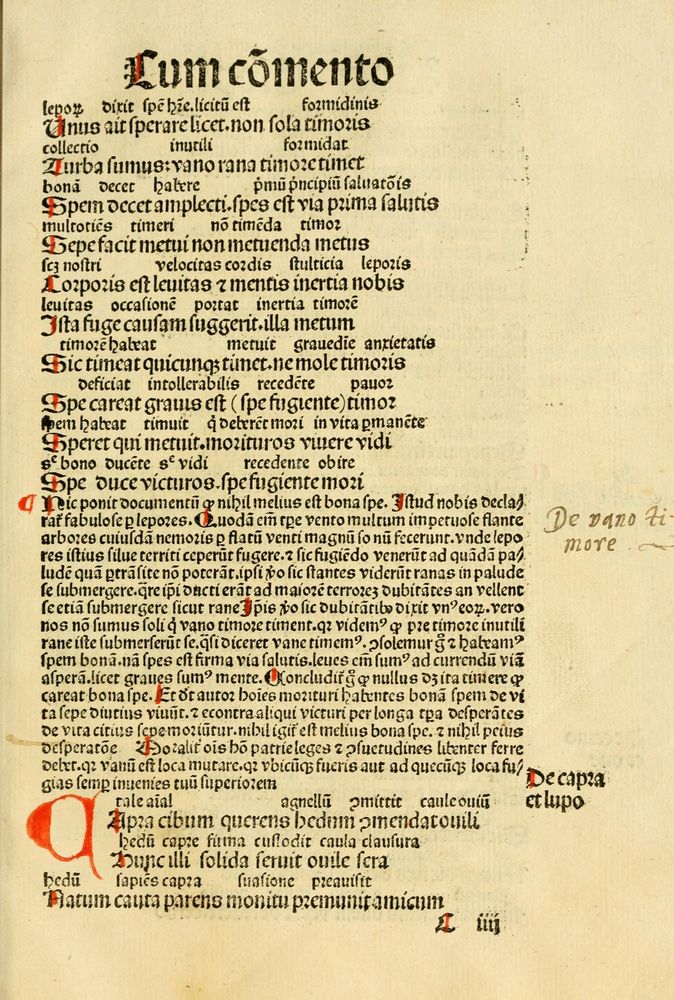 Cum cōmento
leporꝝ dixit spē hr̄e. licitū est formidinis
Unus ait sperare licet. non sola timoris
collectio inutili formidat
Turba sumus: vano rana timore timet
bonā decet habere pͥmū pͥncipiū saluatōis
Spem decet amplecti. spes est via prima salutis
multotiēs timeri nō timēda timor
Sepe facit metui non metuenda metus
scꝫ nostri velocitas cordis stulticia leporis
Corporis est leuitas ⁊ mentis inertia nobis
leuitas occasionē portat inertia timorē
Ista fuge causam suggerit. illa metum
timorē habeat metuit grauedīe anxietatis
Sic timeat quicunqꝫ timet. ne mole timoris
deficiat intollerabilis recedēte pauor
Spe careat grauis est (spe fugiente) timor
spem habeat timuit q̄ deberēt mori in vita ꝑmanēte
Speret qui metuit. morituros viuere vidi
sᶜ bono ducēte sᶜ vidi recedente obire
Spe duce victuros. spe fugiente mori
¶ Hic ponit documentū ꝙ nihil melius est bona spe. Istud nobis decla/
rat̄ fabulose ꝑ lepores. Quodā em̄ tꝑe vento multum impetuose flante
arbores cuiusdam nemoris ꝑ flatū venti magnū so nū fecerunt. vnde lepo
res istius silue territi ceperūt fugere. ⁊ sic fugiēdo venerūt ad quādā pa/
ludē quā ꝑtrāsite nō poterāt. ipsi ꝟo sic stantes viderūt ranas in palude
se submergere. q̄re ip̄i ducti erāt ad maiorē terroreꝫ dubitātes an vellent
se etiā submergere sicut rane Ip̄is ꝟo sic dubitātibꝰ dixit vnꝰ eoꝝ. vero
nos nō sumus soli q̄ vano timore timent. qꝛ videmꝰ ꝙ pre timore inutili
rane iste submerserūt se. q̄si diceret vane timemꝰ. ↄsolemur gͦ ⁊ habeamꝰ
spem bonā. nā spes est firma via salutis. leues em̄ sumꝰ ad currendū viā
asperā. licet graues sumꝰ mente. Cōcludit̄ gͦ ꝙ nullus dꝫ ita timere ꝙ
careat bona spe. Et dt̄ autor hoīes morituri habentes bonā spem de vi
ta sepe diutius viuūt. ⁊ econtra aliqui victuri per longa tꝑa desperātes
de vita citius sepe moriūtur. nihil igit̄ est melius bona spe. ⁊ nihil peius
desperatōe Moralit̄ oīs hō patrie leges ⁊ ↄsuetudines libenter ferre
debet. qꝛ vanū est loca mutare. qꝛ vbicūqꝫ fueris aut ad quecūqꝫ loca fu/
gias semꝑ inuenies tuū superiorem
De vano ti-
more
De capra
et lupo
tale aīal agnellū ꝓmittit caule ouiū
Capra cibum querens hedum ↄmendat ouili
hedū capre firma custodit caula clausura
Hunc illi solida seruit ouile sera
hedū sapiēs capra suasione preauisit
Natum cauta parens monitu premunit amicum
A iiij